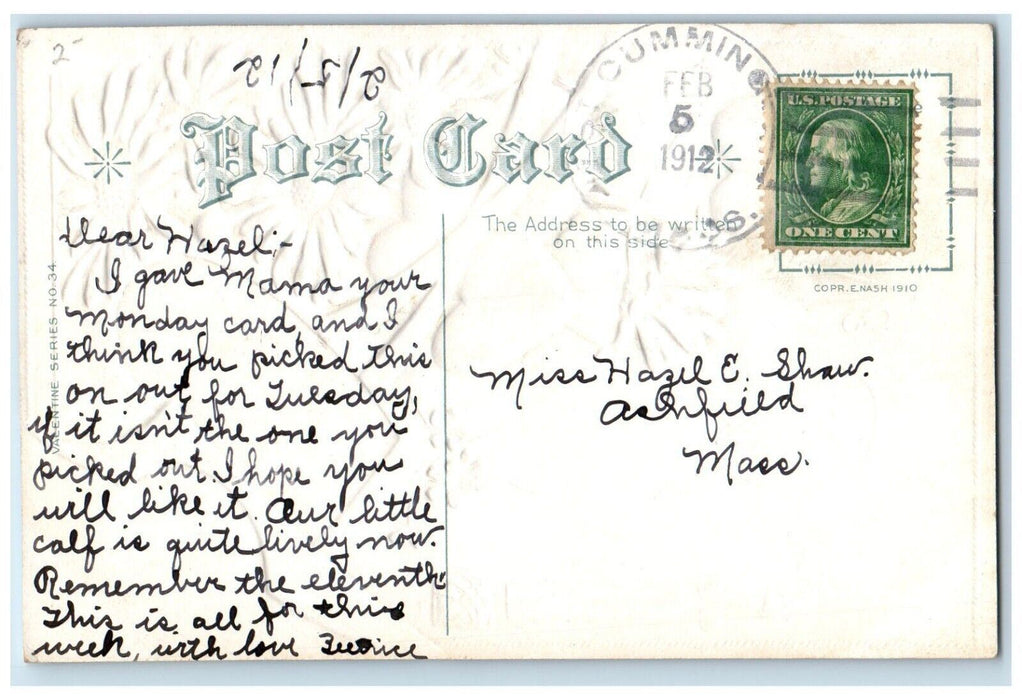 2-
2/5/12
Post Card
CUMMIN
FEB
5
1912
U.S. POSTAGE
ONE CENT
The Address to be written
on this side
COPR. E. NASH 1910
VALENTINE SERIES NO. 34.
Dear Hazel;-
I gave Mama your
Monday card, and I
think you picked this
on out for Tuesday,
if it isn't the one you
picked out I hope you
will like it. Our little
calf is quite lively now.
Remember the eleventh.
This is all for this
week, with love
Miss Hazel E. Shaw.
Ashfield
Mass.